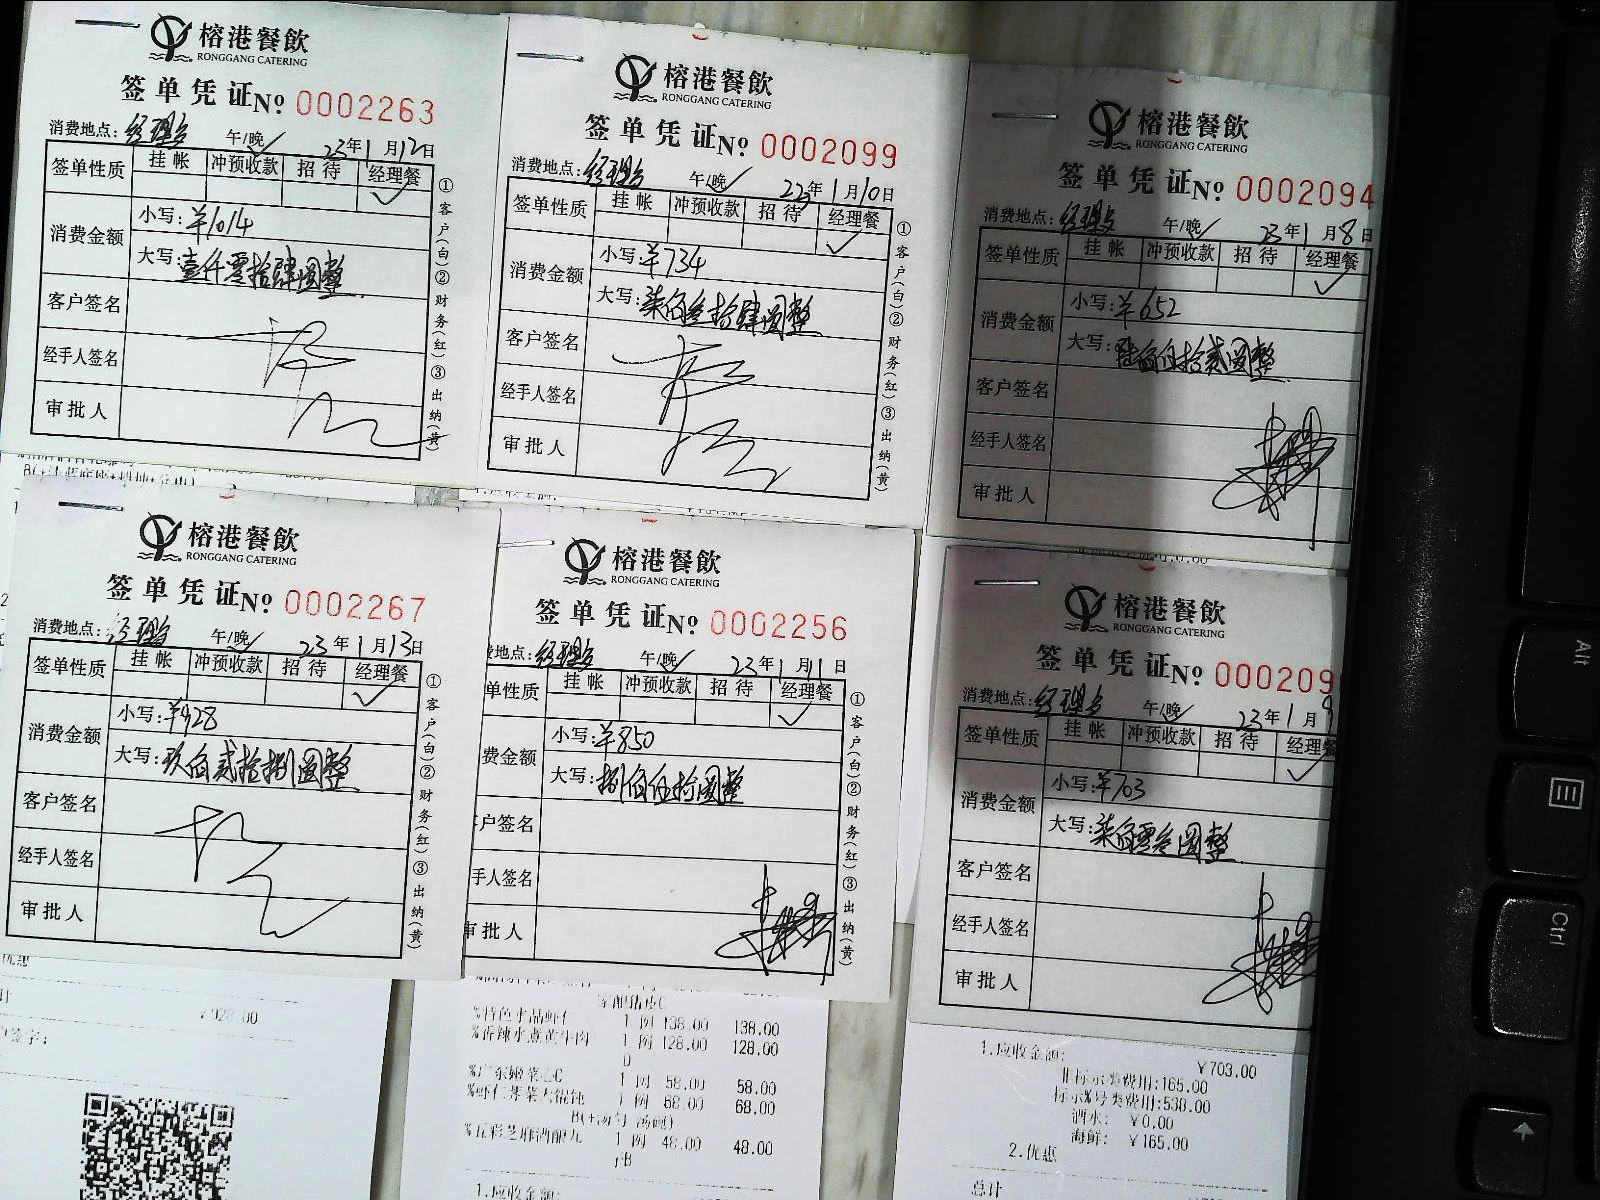 榕港餐飲
RONGGANG CATERING
签单凭证 № 0002263
消费地点:经理餐 午/晚✓ 23年1月12日
签单性质 挂帐 冲预收款 招待 经理餐
✓
消费金额 小写:¥1014
大写:壹仟零拾肆圆整
客户签名
经手人签名
审批人
①客户(白)②财务(红)③出纳(黄)
榕港餐飲
RONGGANG CATERING
签单凭证 № 0002099
消费地点:经理餐 午/晚✓ 23年1月10日
签单性质 挂帐 冲预收款 招待 经理餐
✓
消费金额 小写:¥734
大写:柒佰叁拾肆圆整
客户签名
经手人签名
审批人
①客户(白)②财务(红)③出纳(黄)
榕港餐飲
RONGGANG CATERING
签单凭证 № 0002094
消费地点:经理餐 午/晚✓ 23年1月8日
签单性质 挂帐 冲预收款 招待 经理餐
✓
消费金额 小写:¥652
大写:陆佰伍拾贰圆整
客户签名
经手人签名
审批人
榕港餐飲
RONGGANG CATERING
签单凭证 № 0002267
消费地点:经理餐 午/晚✓ 23年1月13日
签单性质 挂帐 冲预收款 招待 经理餐
✓
消费金额 小写:¥928
大写:玖佰贰拾捌圆整
客户签名
经手人签名
审批人
①客户(白)②财务(红)③出纳(黄)
优惠
计 ¥928.00
签字:
榕港餐飲
RONGGANG CATERING
签单凭证 № 0002256
地点:经理餐 午/晚✓ 23年1月11日
单性质 挂帐 冲预收款 招待 经理餐
✓
费金额 小写:¥850
大写:捌佰伍拾圆整
户签名
手人签名
审批人
①客户(白)②财务(红)③出纳(黄)
%特色水晶虾仁 1 例 138.00 138.00
%香辣水煮黄牛肉 1 例 128.00 128.00
D
1 例 58.00 58.00
1 例 68.00 68.00
%五彩芝麻酒酿丸 1 例 48.00 48.00
1.应收金额:
榕港餐飲
RONGGANG CATERING
签单凭证 № 000209
消费地点:经理餐 午/晚✓ 23年1月9
签单性质 挂帐 冲预收款 招待 经理餐
✓
消费金额 小写:¥703
大写:柒佰零叁圆整
客户签名
经手人签名
审批人
1.应收金额: ¥703.00
非标示类费用:165.00
标示%号类费用:538.00
酒水: ¥0.00
海鲜: ¥165.00
2.优惠
总计
Alt
Ctrl